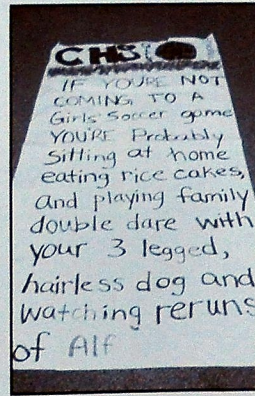 CHS
IF YOU'RE NOT
COMING TO A
Girls' Soccer game
YOU'RE Probably
Sitting at home
eating rice cakes,
and playing family
double dare with
your 3 legged,
hairless dog and
watching reruns
of Alf